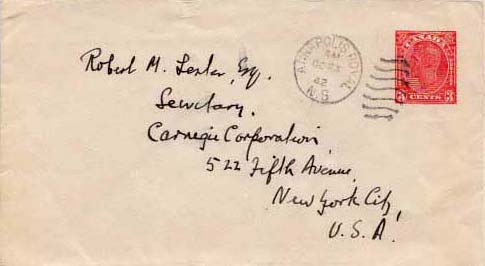 CANADA
3 CENTS 3
ANNAPOLIS ROYAL
AM
42
N.S.
Robert M. Lester, Esq.
Secretary,
Carnegie Corporation,
522 Fifth Avenue,
New York City,
U.S.A.